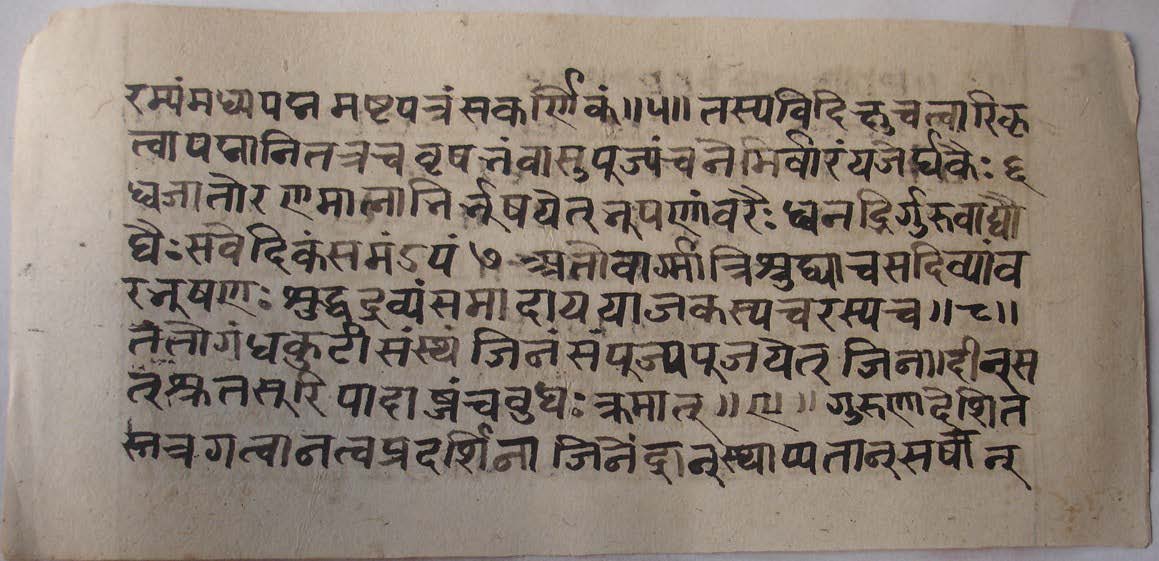 रम्यंमध्यपद्ममष्टपत्रंसकर्णिकं॥५॥तस्यविदिक्षुचत्वारिकृ
त्वापद्मानितत्रचवृषत्तंवासुपूज्यंचनेमिर्वीरंयजेर्घकैः६
ध्वजातोरणमालानिर्नूषयेत्नूषणंवरैः ध्वनद्भिर्गुरुवाद्यौ
घैःसवेदिकंसमंऽपं ७ अतोवार्ग्मीत्रिश्रुध्याचसदिव्यांव
रनूषणः श्रुद्धद्रव्यंसमादाययाजकस्यचरस्यच॥८॥
ततोगंधकुटीसंस्थं जिनंसंपूज्यपूजयेत् जिना।दीन्स
त्श्रुतसूरिपादाब्जंचवुधः क्रमात्॥९॥गुरुणादेशित
स्तत्रगत्वानत्वप्रदर्शिना जिनेंद्रान्स्थाप्यतान्सर्षान्